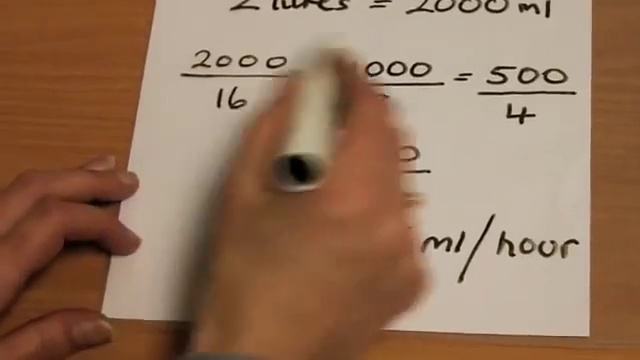 2 litres = 2000 ml
2000 000 = 500
16 4
0
ml/hour